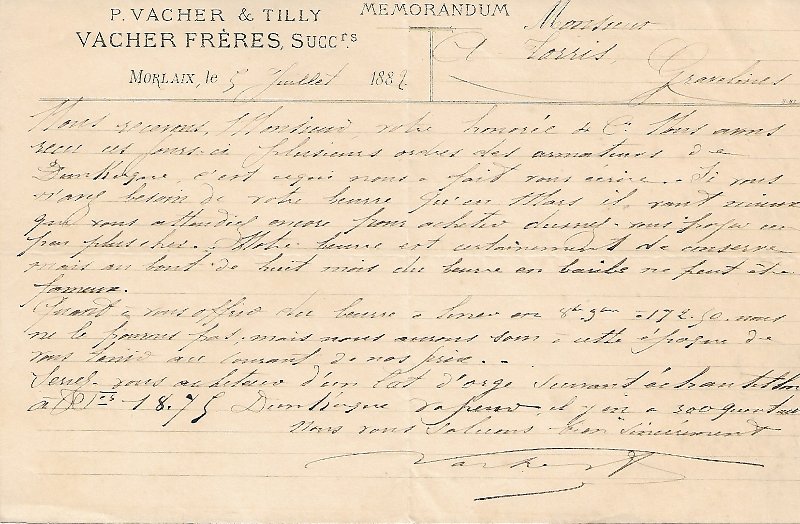 P. VACHER & TILLY
VACHER FRÈRES, SUCCrs
MEMORANDUM
Monsieur
A Torris,
Gravelines
MORLAIX, le 5 Juillet 1882
Nous recevons, Monsieur, votre honorée du C. Nous avons
reçu ces jours-ci plusieurs ordres des armateurs de
Dunkerque, c'est ce qui nous a fait vous écrire. Si vous
n'avez besoin de votre beurre qu'en Mars il vaut mieux
que vous attendiez encore pour acheter
pas plus cher. Notre beurre est certainement de conserve
mais au bout de huit mois du beurre en barils ne peut être
fameux.
Quant à vous offrir du beurre à livrer en 8bre 9bre à 172.50 nous
ne le pouvons pas, mais nous aurons soin à cette époque de
vous tenir au courant de nos prix.
Seriez-vous acheteur d'un lot d'orge suivant échantillon
à 18.75 Dunkerque vapeur, il y en a 300 quintaux
Nous vous saluons bien sincèrement